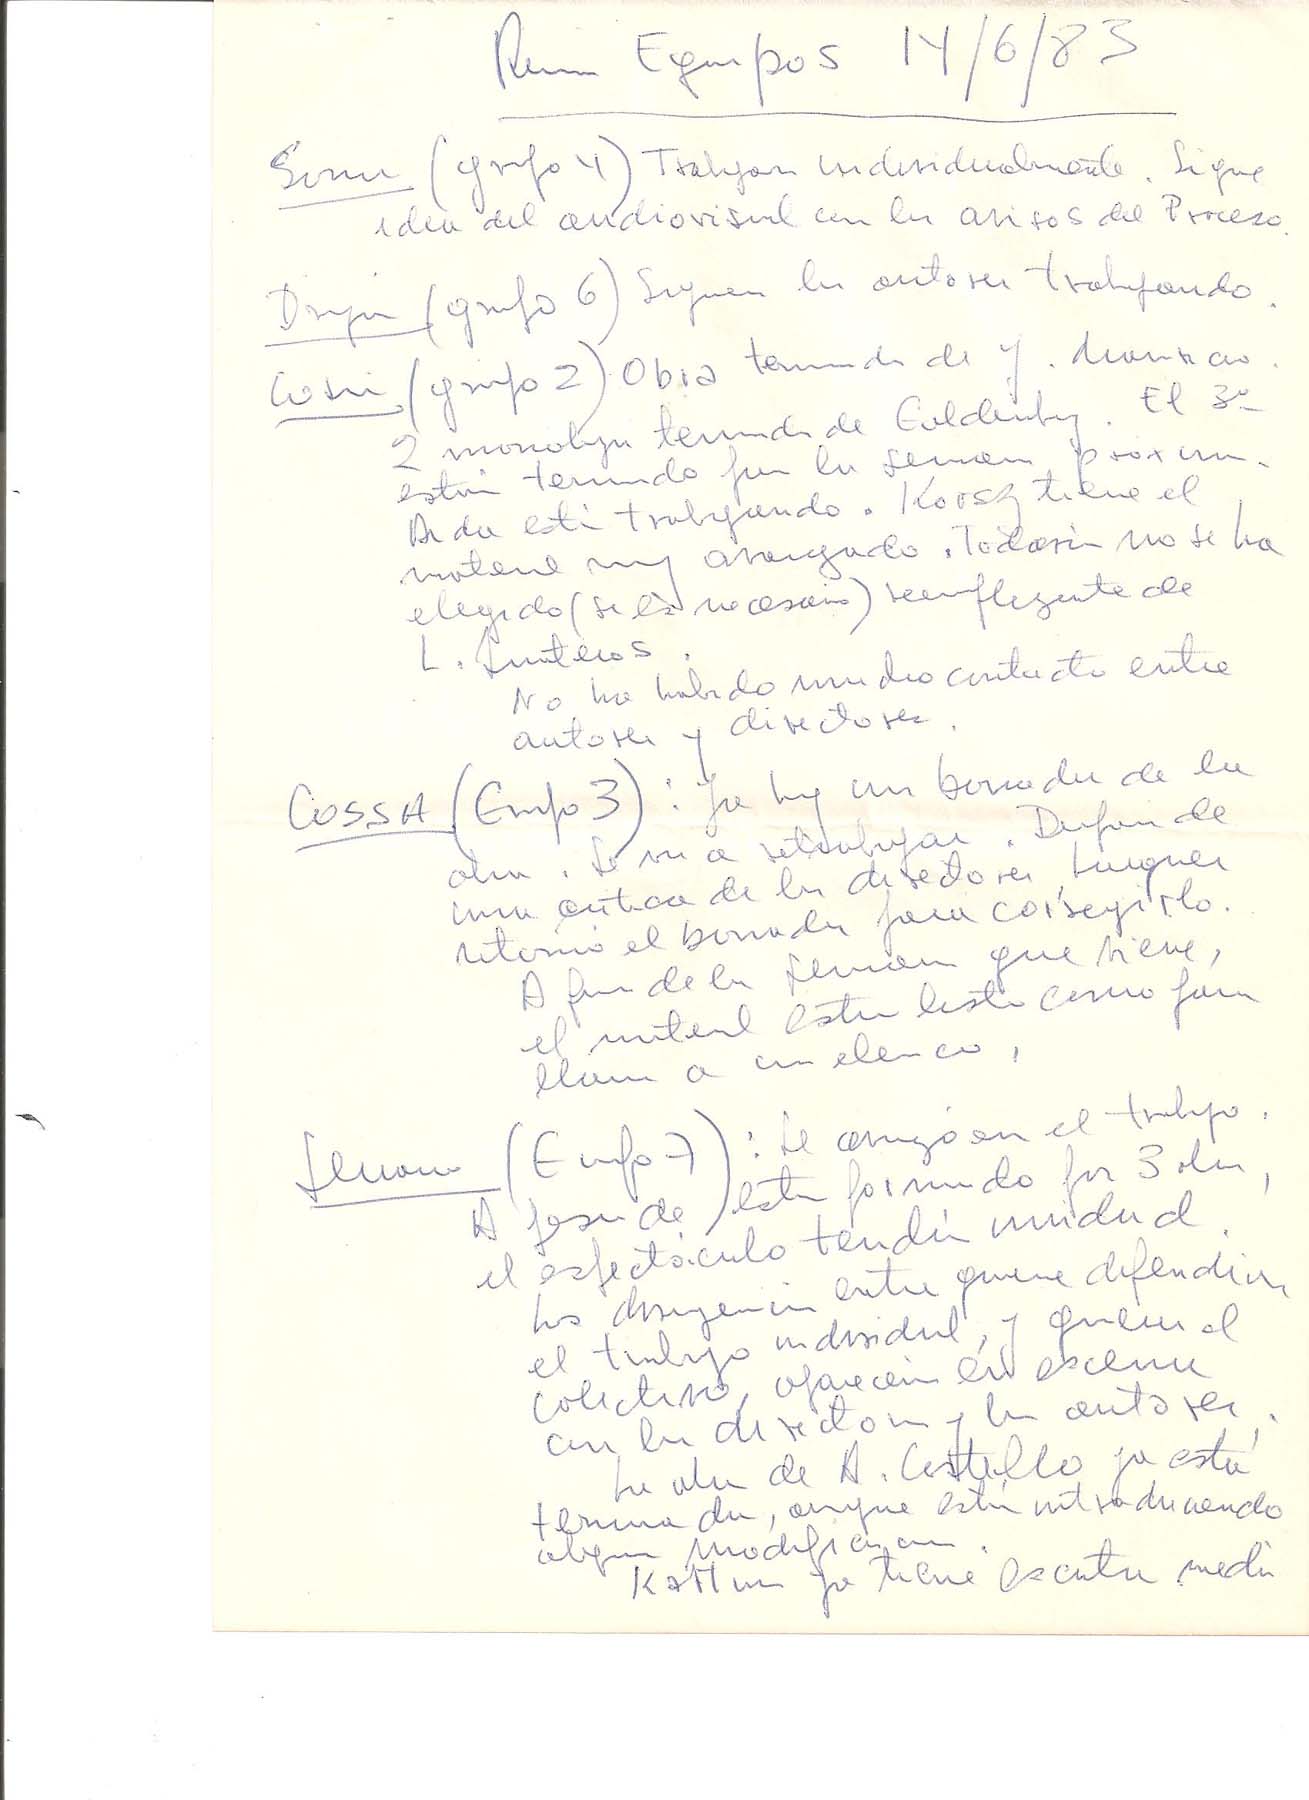 Equipos 14/6/83
(grupo 4) Trabajan individualmente. Sigue
idea del audiovisual con los avisos del Proceso.
(grupo 6) Siguen los autores trabajando.
(grupo 2) Obra terminada de
2 monólogos terminados de Goldenberg. El 3º
estará terminado para la semana próxima.
está trabajando. tiene el
material muy avanzado. Todavía no se ha
elegido (si es necesario) reemplazante de
L.
No ha habido mucho contacto entre
autores y directores.
COSSA (Grupo 3): Ya hay un borrador de la
obra. Se va a retrabajar. de
una crítica de los directores,
el borrador para corregirlo.
A fin de la semana que viene,
el material estará listo como para
llamar a un elenco.
Serrano (Grupo 7): Se avanzó en el trabajo.
A pesar de estar formado por 3 obras,
el espectáculo tendrá unidad.
Las divergencias entre quienes defendían
el trabajo individual, y quienes el
colectivo, aparecerán en escena
con los directores y los autores.
La obra de A. Castillo ya está
terminada, aunque está introduciendo
algunas modificaciones.
ya tiene escrita media